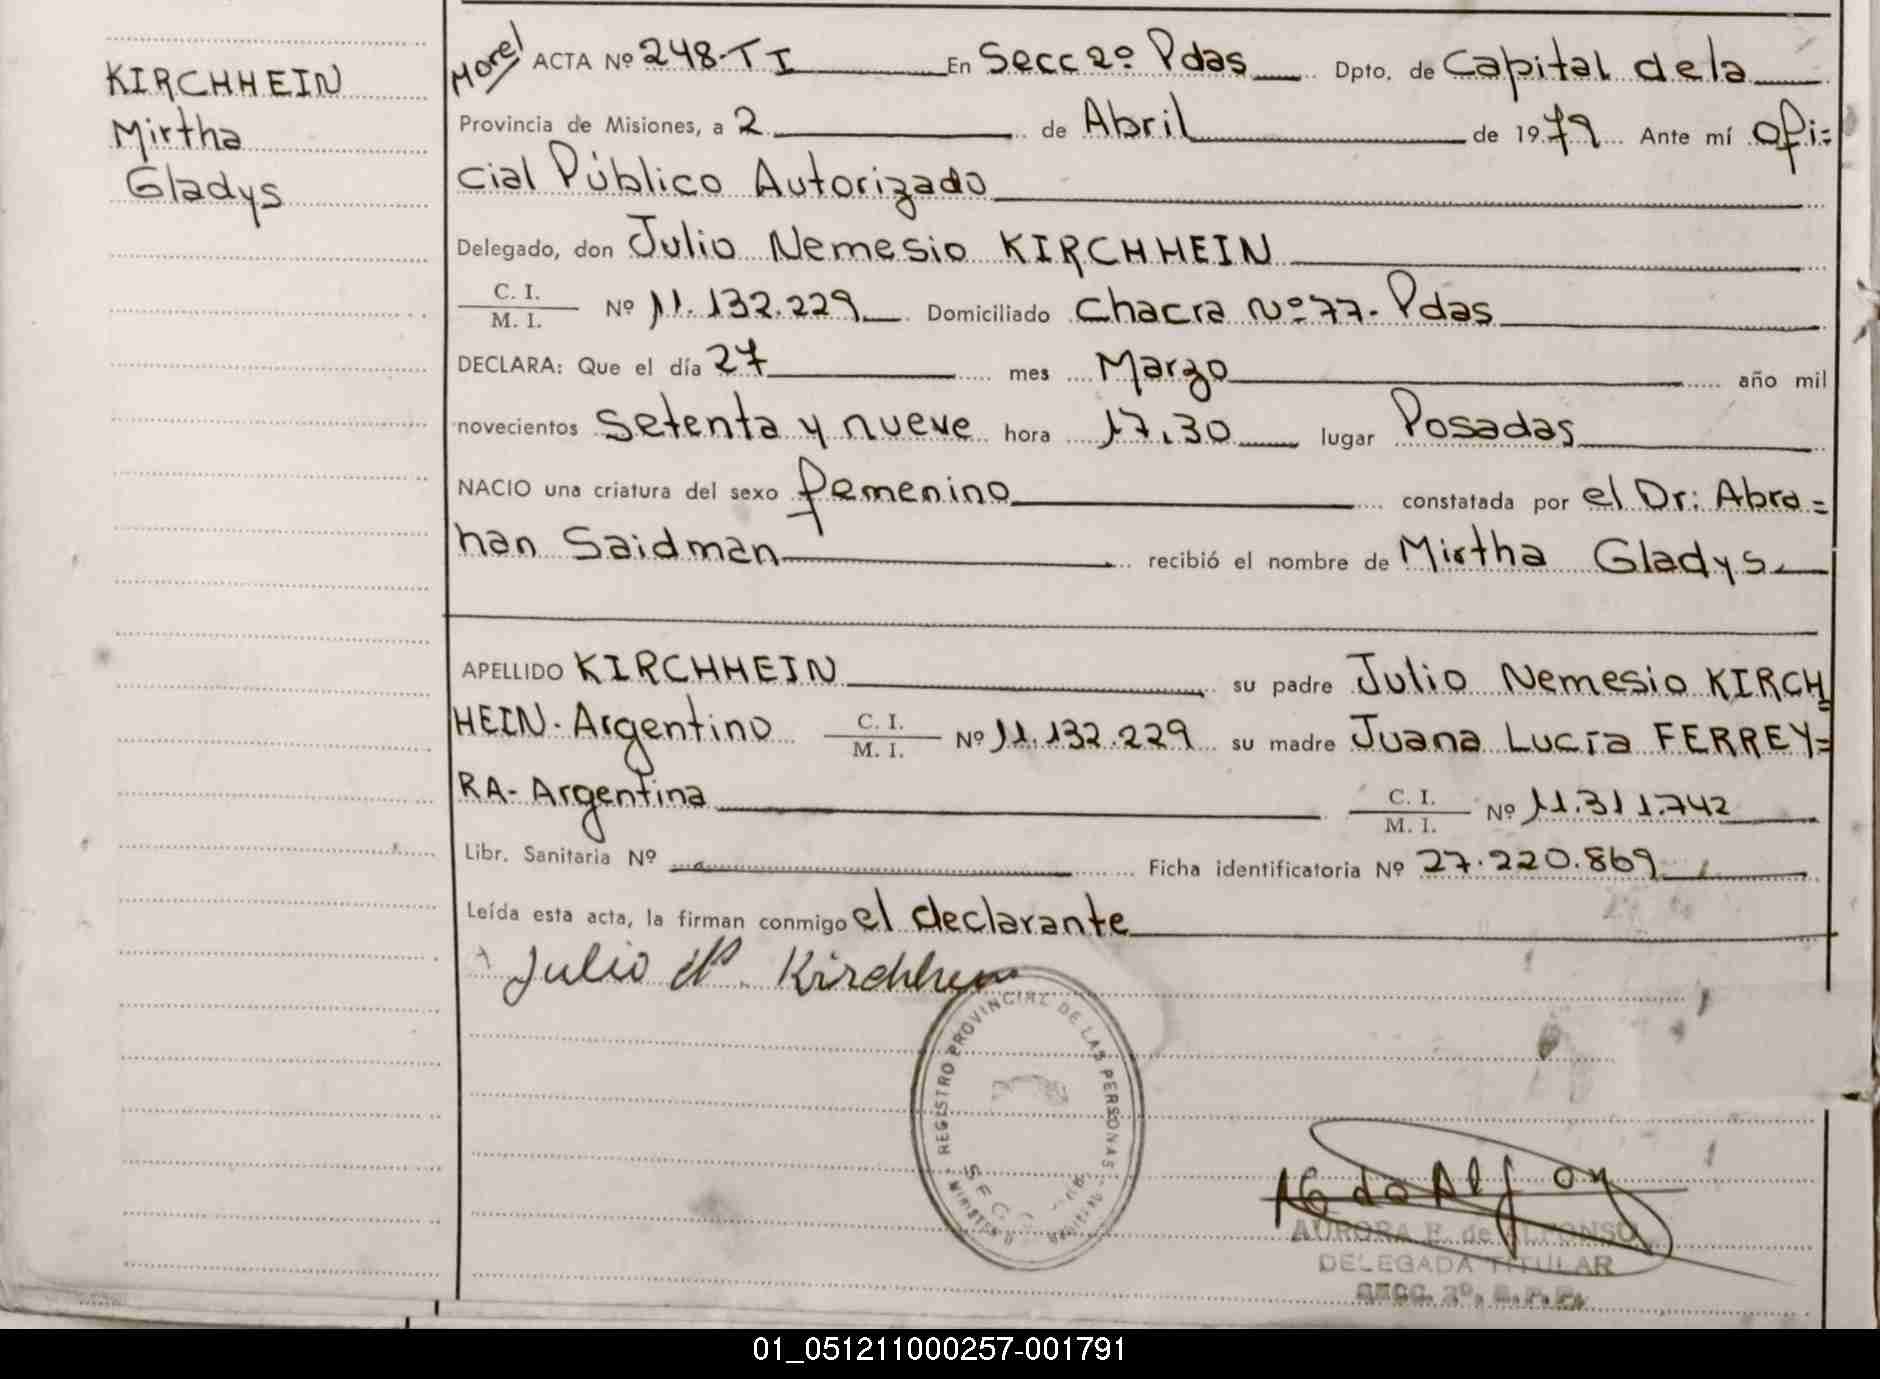 KIRCHHEIN
Mirtha
Gladys
Morel ACTA Nº 248-T I En Secc 2º Pdas Dpto. de Capital de la
Provincia de Misiones, a 2 de Abril de 1979 Ante mí Ofi=
cial Público Autorizado
Delegado, don Julio Nemesio KIRCHHEIN
C. I.
M. I. Nº 11.132.229 Domiciliado Chacra Nº 77. Pdas
DECLARA: Que el día 27 mes Marzo año mil
novecientos setenta y nueve hora 17,30 lugar Posadas
NACIO una criatura del sexo femenino constatada por el Dr: Abra=
han Saidman recibió el nombre de Mirtha Gladys
APELLIDO KIRCHHEIN su padre Julio Nemesio KIRCH
HEIN- Argentino C. I.
M. I. Nº 11.132.229 su madre Juana Lucía FERREY=
RA- Argentina C. I.
M. I. Nº 11.311.742
Libr. Sanitaria Nº Ficha identificatoria Nº 27.220.869
Leída esta acta, la firman conmigo el declarante
Julio N. Kirchhein
REGISTRO PROVINCIAL DE LAS PERSONAS
SECC
AURORA E. de ALFONSO
DELEGADA TITULAR
SECC. 2º. R.P.P.
01_051211000257-001791